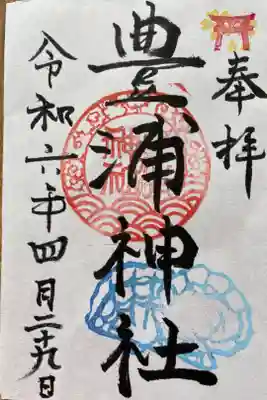 奉拝
豊浦神社
令和六年四月二十九日